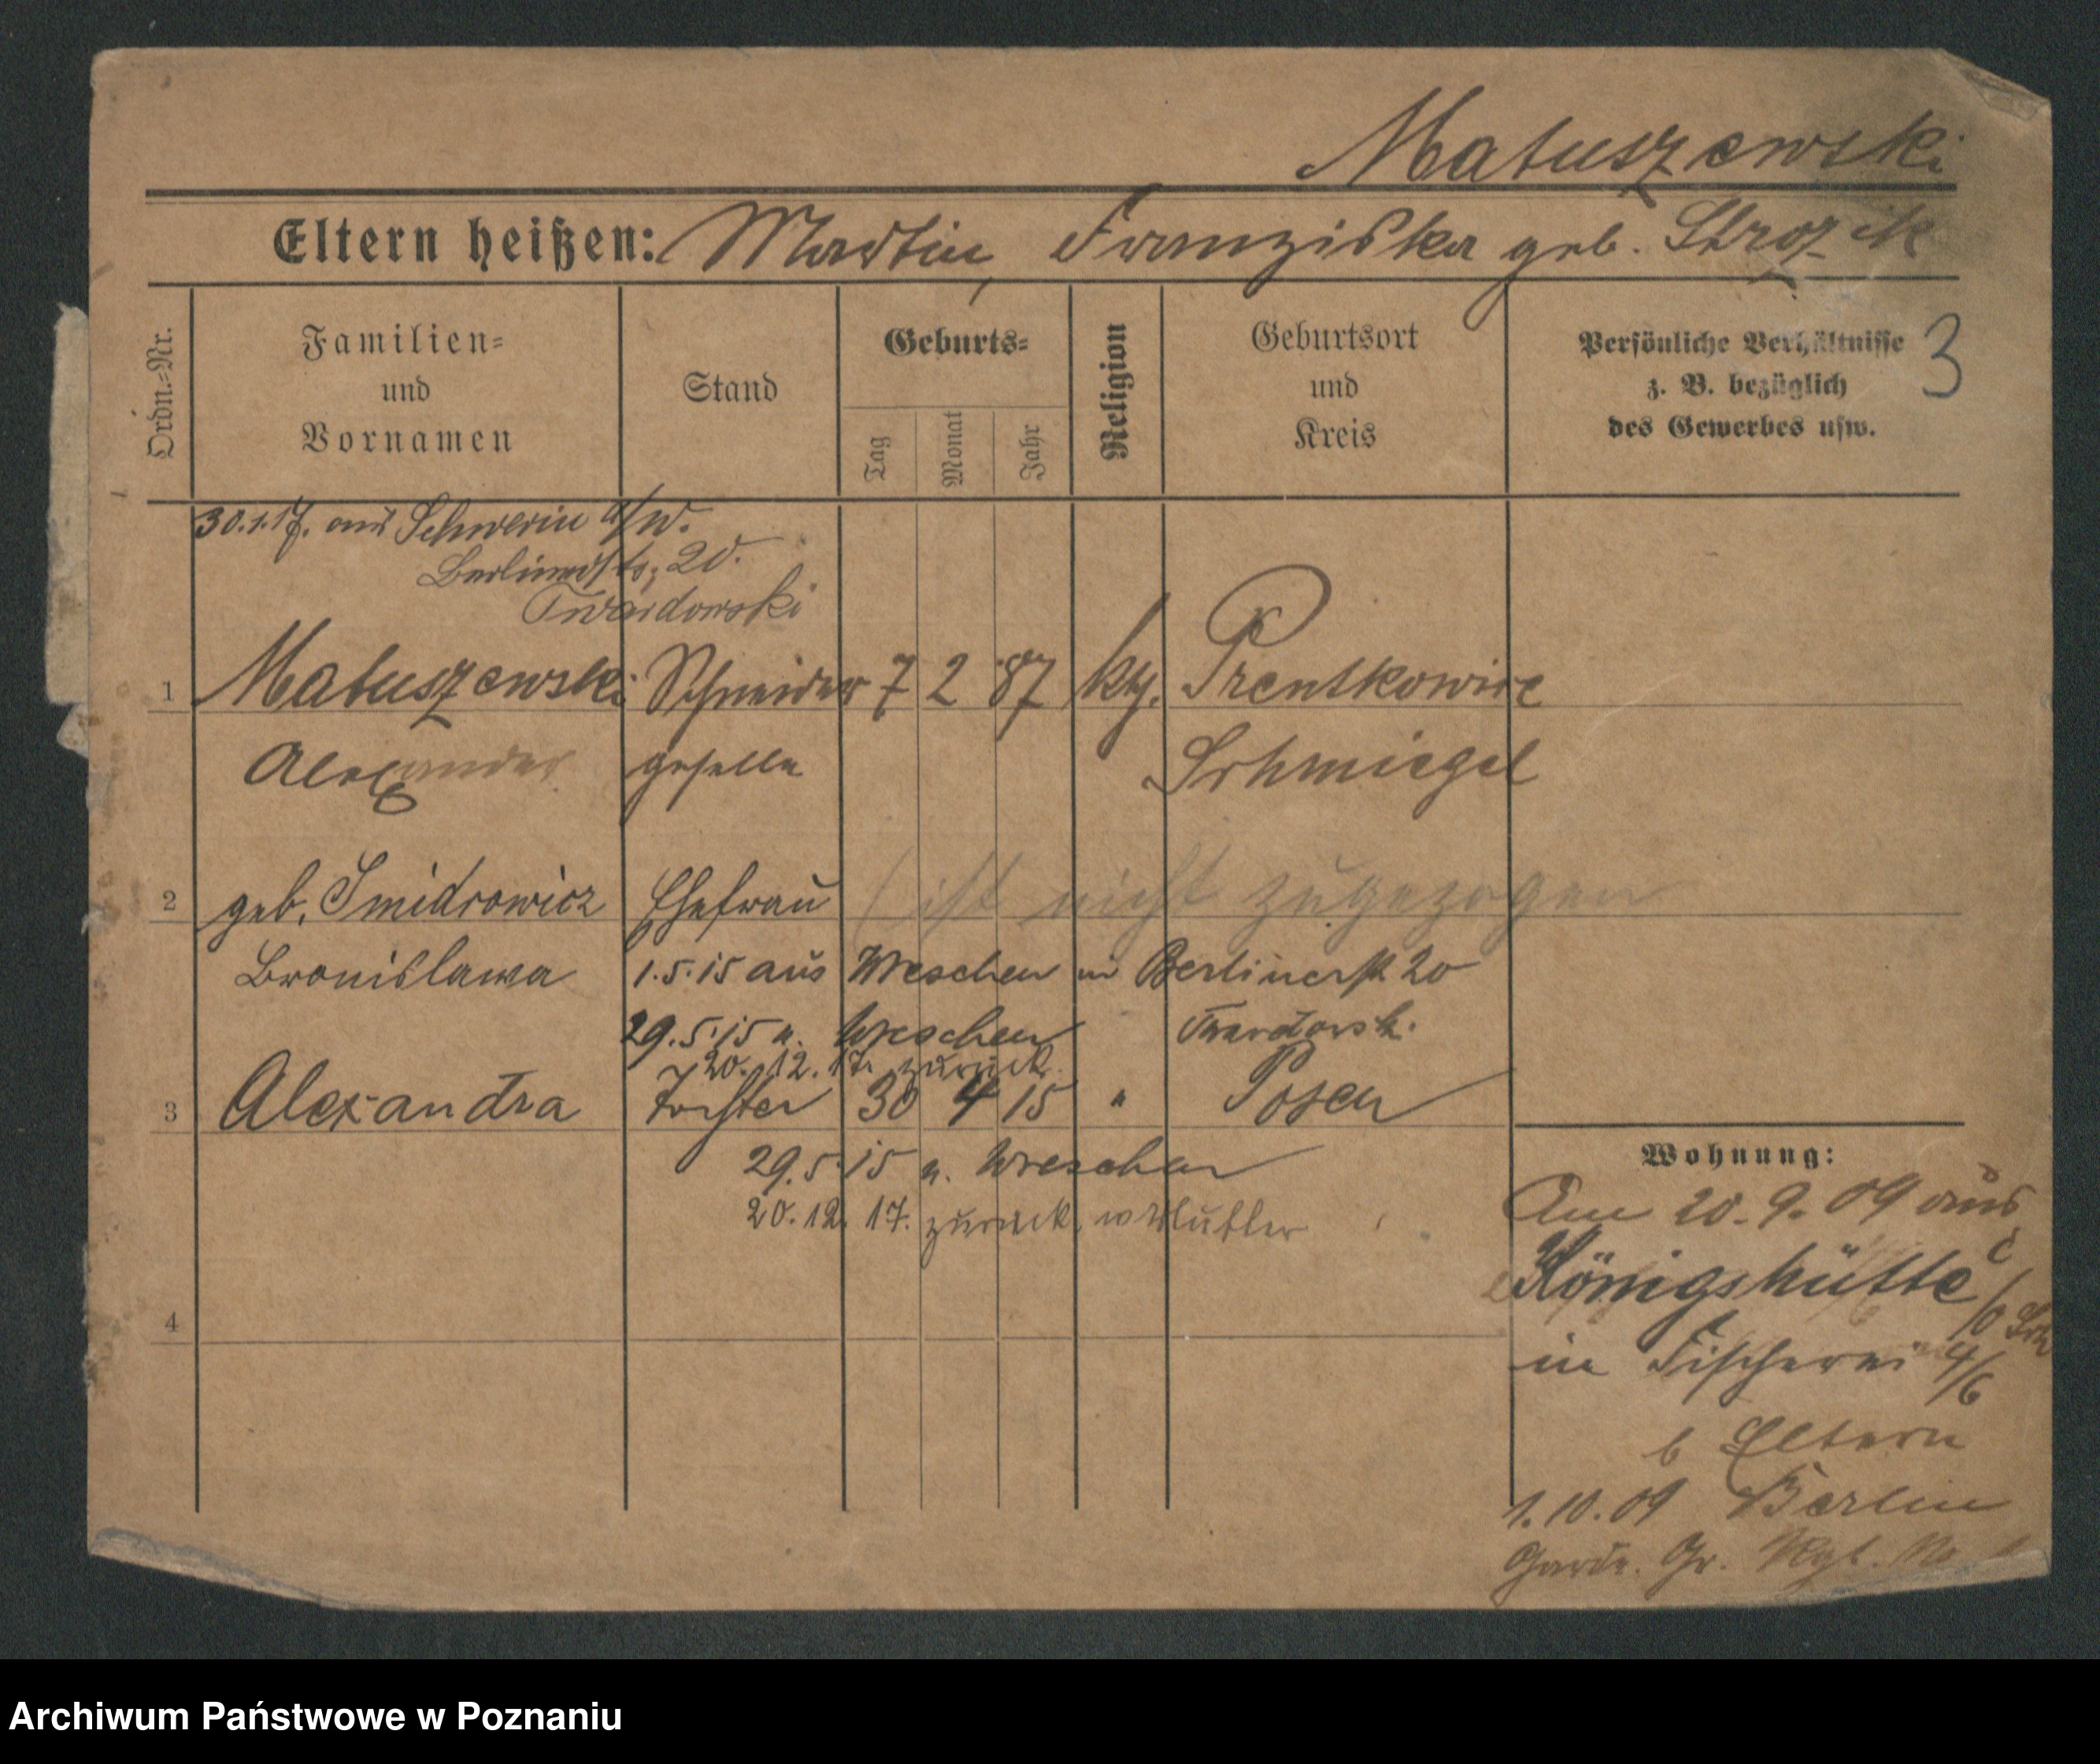 Matuszewski
Eltern heißen: Martin, Franziska geb. Strozik
Ordn.-Nr.
Familien- und Vornamen
Stand
Geburts-
Tag
Monat
Jahr
Religion
Geburtsort und Kreis
Persönliche Verhältnisse z. B. bezüglich des Gewerbes usw.
3
30.1.17. aus Schwerin a/W.
Berlinerstr. 20.
Twardowski
1 Matuszewski Schneider 7 2 87 kth. Prentkowice
Alexander geselle Schmiegel
2 geb. Smidrowicz Ehefrau (ist nicht zugezogen
Bronislawa 1.5.15 aus Wreschen in Berlinerst 20
29.5.15 n. Wreschen Twardowsk.
20.12.17. zurück
3 Alexandra Tochter 30 4 15 " Posen
29.5.15 n. Wreschen
20.12.17. zurück Mutter
4
Wohnung:
Am 20.9.09 aus
Königshütte
in Fischerei 4/6
b Eltern
1.10.09 Berlin
Garde. Gr. Rgt. No